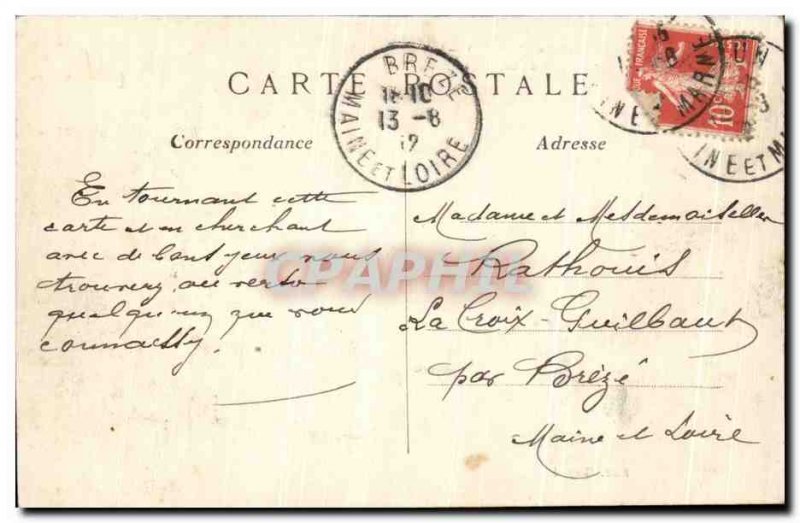 CARTE POSTALE
Correspondance
Adresse
BREZÉ
18 10
13 -8
12
MAINE ET LOIRE
10c
MARNE
INE ET M
En tournant cette
carte et en cherchant
avec de bons yeux vous
trouverez au verso
quelqu'un que vous
connaissez.
Madame et Mesdemoiselles
Rathouis
La Croix-Guilbaut
par Brézé
Maine et Loire
CPAPHIL